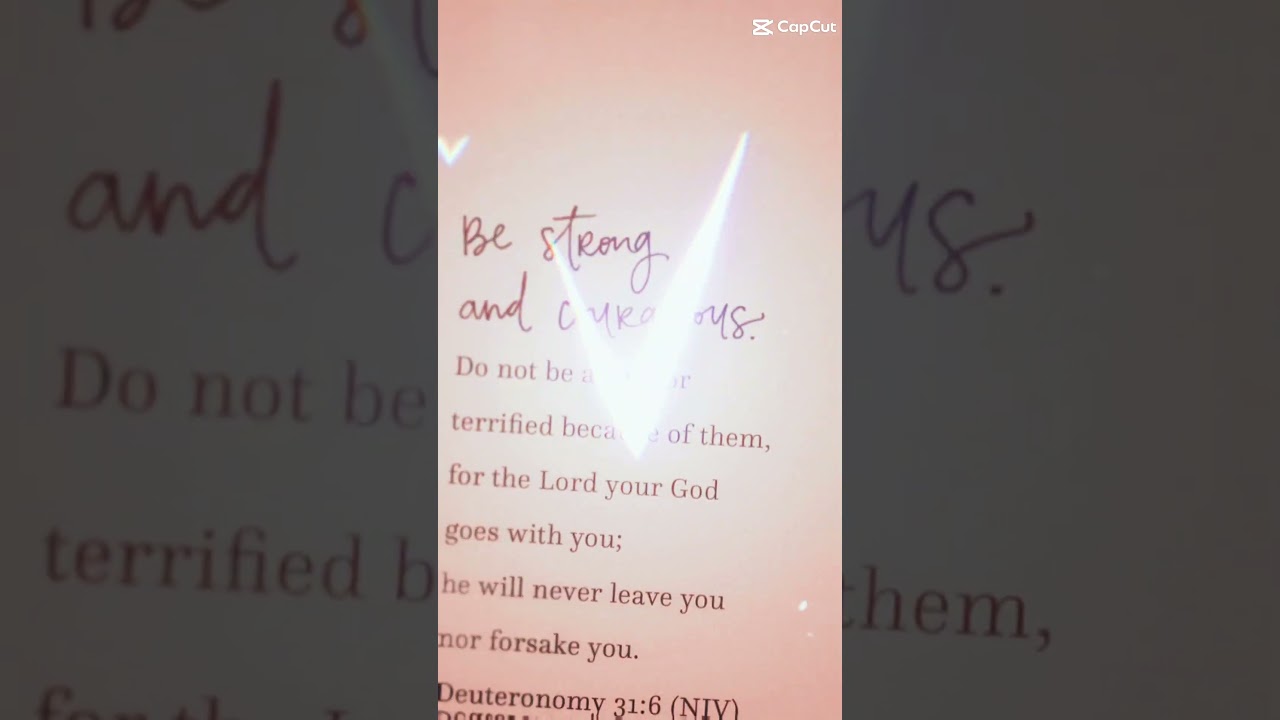 CapCut
Be strong
and courageous.
Do not be or
terrified because of them,
for the Lord your God
goes with you;
he will never leave you
nor forsake you.
Deuteronomy 31:6 (NIV)